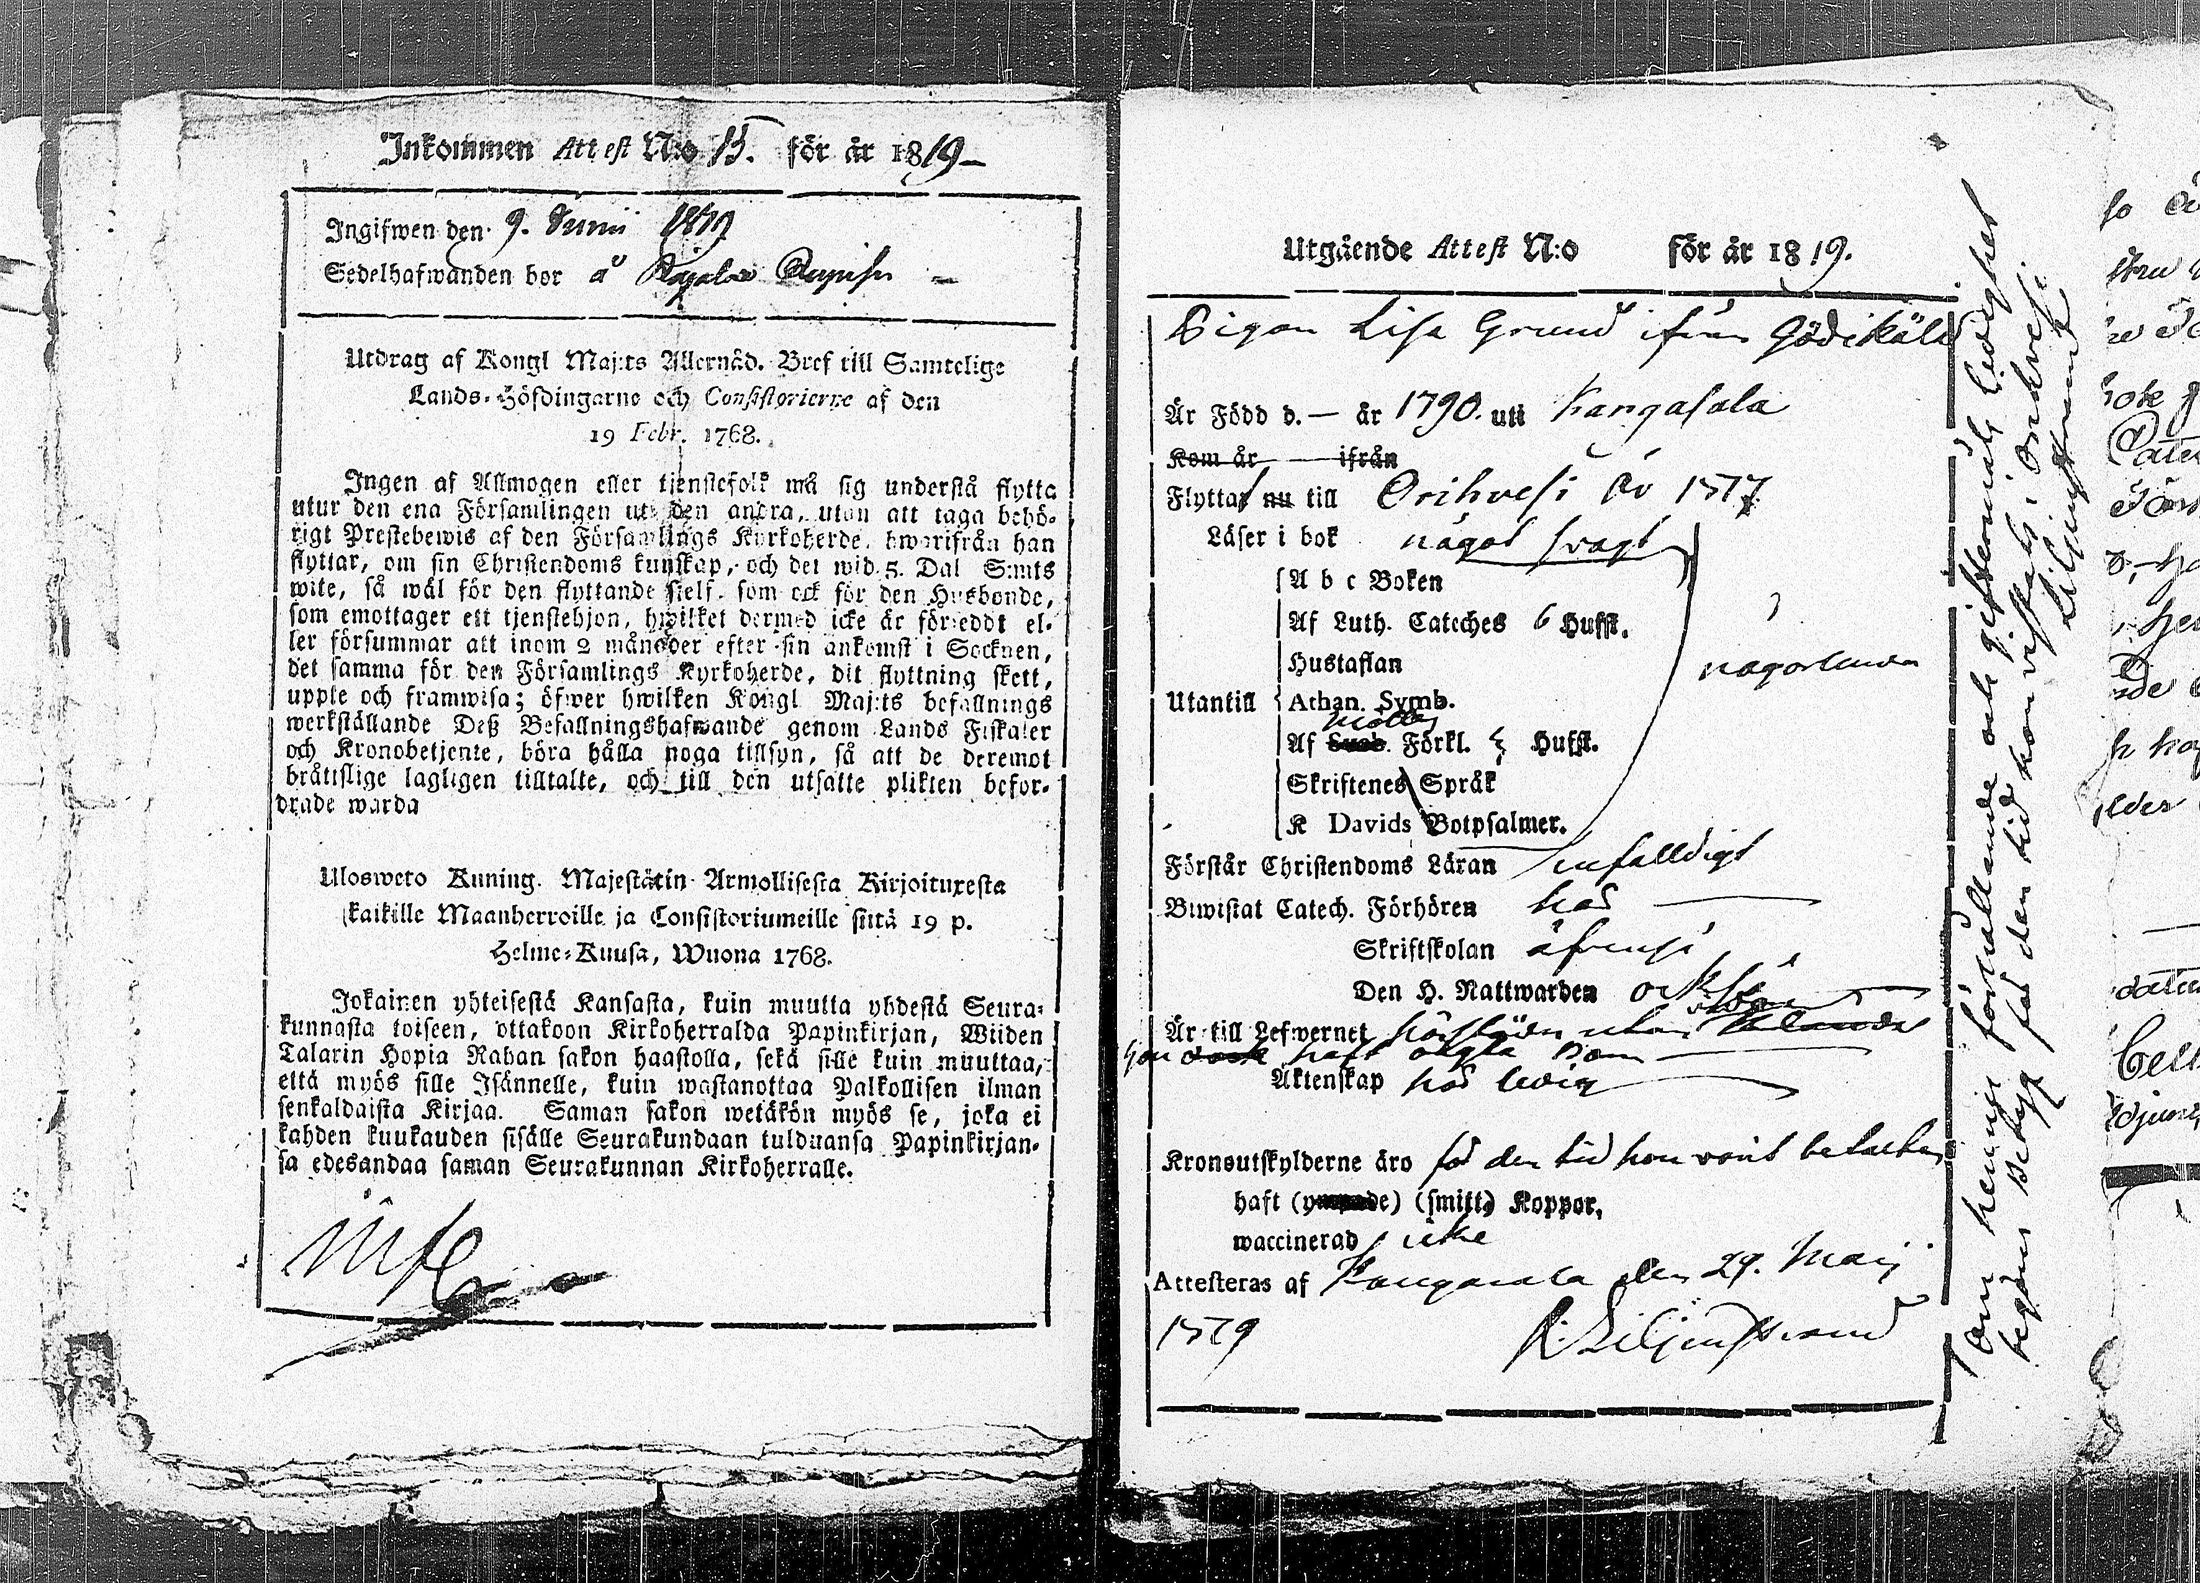 Inkommen Attest N:o 15. för år 1819
Ingifwen den 9. Junii 1819
Sedelhafwanden bor å
Utdrag af Kongl Maj:ts Allernåd. Bref till Samtelige
Lands-Höfdingarne och Consistorierne af den
19 Febr. 1768.
Ingen af Allmogen eller tjenstefolk må sig understå flytta
utur den ena Församlingen uti den andra, utan att taga behö-
rigt Prestebewis af den Församlings Kyrkoherde, hwarifrån han
flyttar, om sin Christendoms kunskap, och det wid 5. Dal S:mts
wite, så wäl för den flyttande sielf, som ock för den Husbonde,
som emottager ett tjenstehjon, hwilket dermed icke är försedt el-
ler försummar att inom 2 månader efter sin ankomst i Socknen,
det samma för den Församlings Kyrkoherde, dit flyttning skett,
upple och framwisa; öfwer hwilken Kongl Maj:ts befallnings
werkställande Deß Befallningshafwande genom Lands Fiskaler
och Kronobetjente, böra hålla noga tillsyn, så att de deremot
bråttslige lagligen tilltalte, och till den utsatte plikten befor-
drade warda
Ulosweto Kuning. Majestätin Armollisesta Kirjoituxesta
kaikille Maanherroille ja Consistoriumeille siitä 19 p.
Helme-Kuusa, Wuona 1768.
Jokainen yhteisestä Kansasta, kuin muutta yhdestä Seura-
kunnasta toiseen, ottakoon Kirkoherralda Papinkirjan, Wiiden
Talarin Hopia Rahan sakon haastolla, sekä sille kuin muuttaa,
että myös sille Isännelle, kuin wastanottaa Palkollisen ilman
senkaldaista Kirjaa. Saman sakon wetäkön myös se, joka ei
kahden kuukauden sisälle Seurakundaan tulduansa Papinkirjan-
sa edesandaa saman Seurakunnan Kirkoherralle.
Utgående Attest N:o för år 1819.
Pigan Lisa Grund ifrån
Är Född d. — år 1790. uti Kangasala
Kom år ifrån
Flyttat nu till Orihvesi år 1817
Läser i bok något svagt
A b c Boken
Af Luth. Cateches 6 Hufst.
Hustaflan
någorlunda
Utantill Athan. Symb.
Af Sveb. Förkl. Hufst.
Skriftenes Språk
K Davids Botpsalmer.
Förstår Christendoms Läran enfalldigt
Biwistat Catech. Förhören har
Skriftskolan äfven så
Den H. Nattwarden också
Är till Lefwernet
haft oägta barn
Äktenskap har ledig
Kronoutskylderne äro för den tid hon varit betalter
haft (smitt) Koppor,
waccinerad icke
Attesteras af Kangasala den 29. Maij
1819 Liljenstrand
om hennes förhållande och giftermåls ledighet
begäres betyg för den tid hon vistats i Orihvesi
Liljenstrand